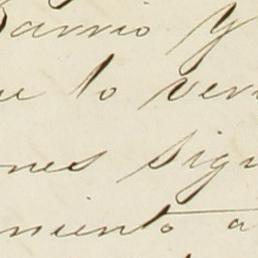 Barrio y
ue lo ver
ones sig
miento a